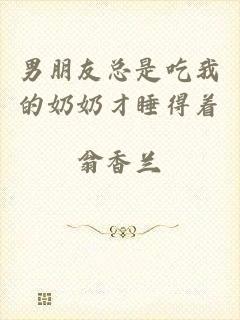 男朋友总是吃我
的奶奶才睡得着
翁香兰